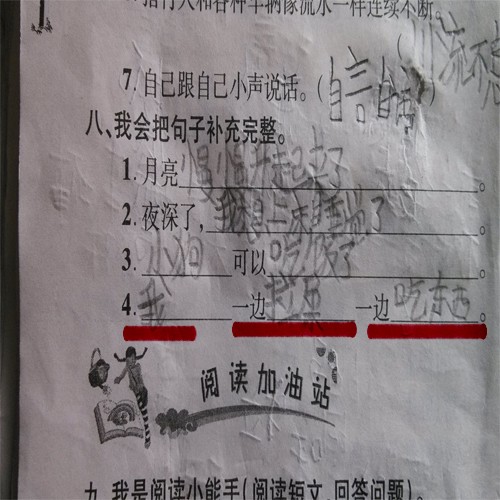 指行人和各种车辆像流水一样连续不断。
(川流不息
7. 自己跟自己小声说话。(自言自语)
八、我会把句子补充完整。
1. 月亮慢慢升起来了。
2. 夜深了,我想上床睡觉了。
3. 小狗可以吃饭了。
4. 我一边拉屎一边吃东西。
阅读加油站
九、我是阅读小能手(阅读短文,回答问题)